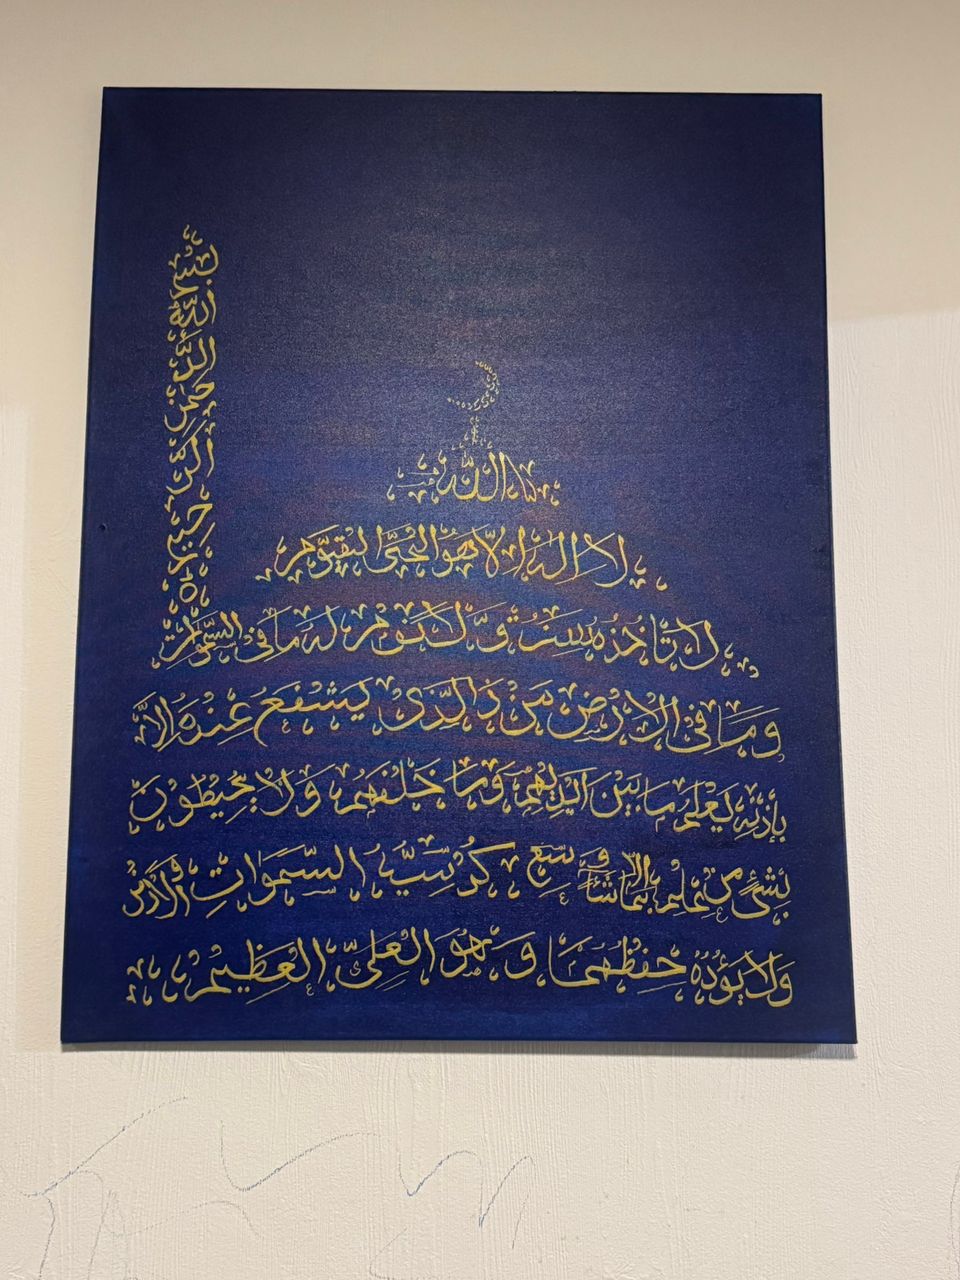 بِسْمِ اللهِ الرَّحْمٰنِ الرَّحِيْمِ
اللّٰهُ
لَا اِلٰهَ اِلَّا هُوَ الْحَيُّ الْقَيُّوْمُ
لَا تَاْخُذُهٗ سِنَةٌ وَّ لَا نَوْمٌ لَهٗ مَا فِى السَّمٰوٰتِ
وَمَا فِى الْاَرْضِ مَنْ ذَا الَّذِىْ يَشْفَعُ عِنْدَهٗ اِلَّا
بِاِذْنِهٖ يَعْلَمُ مَا بَيْنَ اَيْدِيْهِمْ وَمَا خَلْفَهُمْ وَلَا يُحِيْطُوْنَ
بِشَىْءٍ مِّنْ عِلْمِهٖ اِلَّا بِمَا شَآءَ وَسِعَ كُرْسِيُّهُ السَّمٰوَاتِ وَالْاَرْضَ
وَلَا يَؤُدُهٗ حِفْظُهُمَا وَ هُوَ الْعَلِىُّ الْعَظِيْمُ